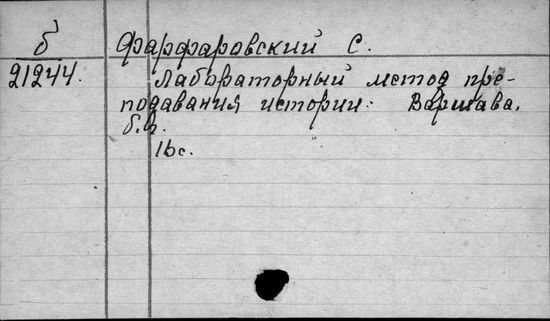 б Фарфаровский С.
21244. Лабораторный метод пре-
подавания истории. Варшава,
б.г.
16с.